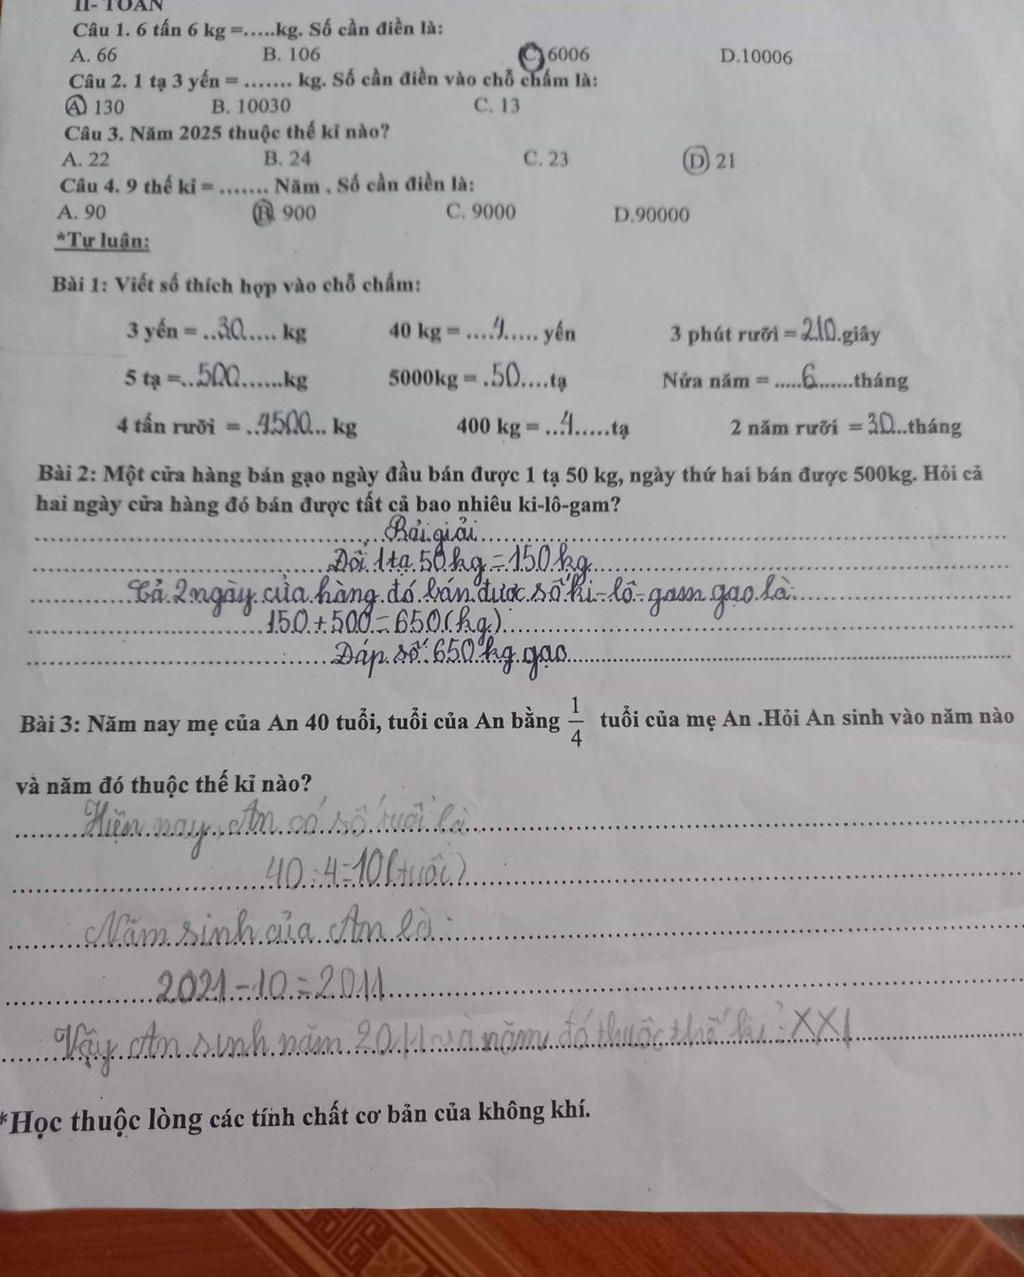 II- TOÁN
Câu 1. 6 tấn 6 kg =.....kg. Số cần điền là:
A. 66 B. 106 C 6006 D.10006
Câu 2. 1 tạ 3 yến = ....... kg. Số cần điền vào chỗ chấm là:
A 130 B. 10030 C. 13
Câu 3. Năm 2025 thuộc thế kỉ nào?
A. 22 B. 24 C. 23 D 21
Câu 4. 9 thế kỉ = ....... Năm . Số cần điền là:
A. 90 B 900 C. 9000 D.90000
*Tự luận:
Bài 1: Viết số thích hợp vào chỗ chấm:
3 yến = ..30..... kg 40 kg = ....4..... yến 3 phút rưỡi = 210.giây
5 tạ =..500......kg 5000kg = .50....tạ Nửa năm = .....6......tháng
4 tấn rưỡi = ..4500... kg 400 kg = ...4.....tạ 2 năm rưỡi = 30..tháng
Bài 2: Một cửa hàng bán gạo ngày đầu bán được 1 tạ 50 kg, ngày thứ hai bán được 500kg. Hỏi cả
hai ngày cửa hàng đó bán được tất cả bao nhiêu ki-lô-gam?
Bài giải
Đổi 1 tạ 50 kg = 150 kg
Cả 2 ngày cửa hàng đó bán được số ki-lô-gam gạo là:
150 + 500 = 650 (kg)
Đáp số: 650 kg gạo
Bài 3: Năm nay mẹ của An 40 tuổi, tuổi của An bằng 1/4 tuổi của mẹ An .Hỏi An sinh vào năm nào
và năm đó thuộc thế kỉ nào?
Hiện nay, An có số tuổi là
40 : 4 = 10 (tuổi)
Năm sinh của An là :
2021 - 10 = 2011
Vậy An sinh năm 2011 và năm đó thuộc thế kỉ : XXI
*Học thuộc lòng các tính chất cơ bản của không khí.